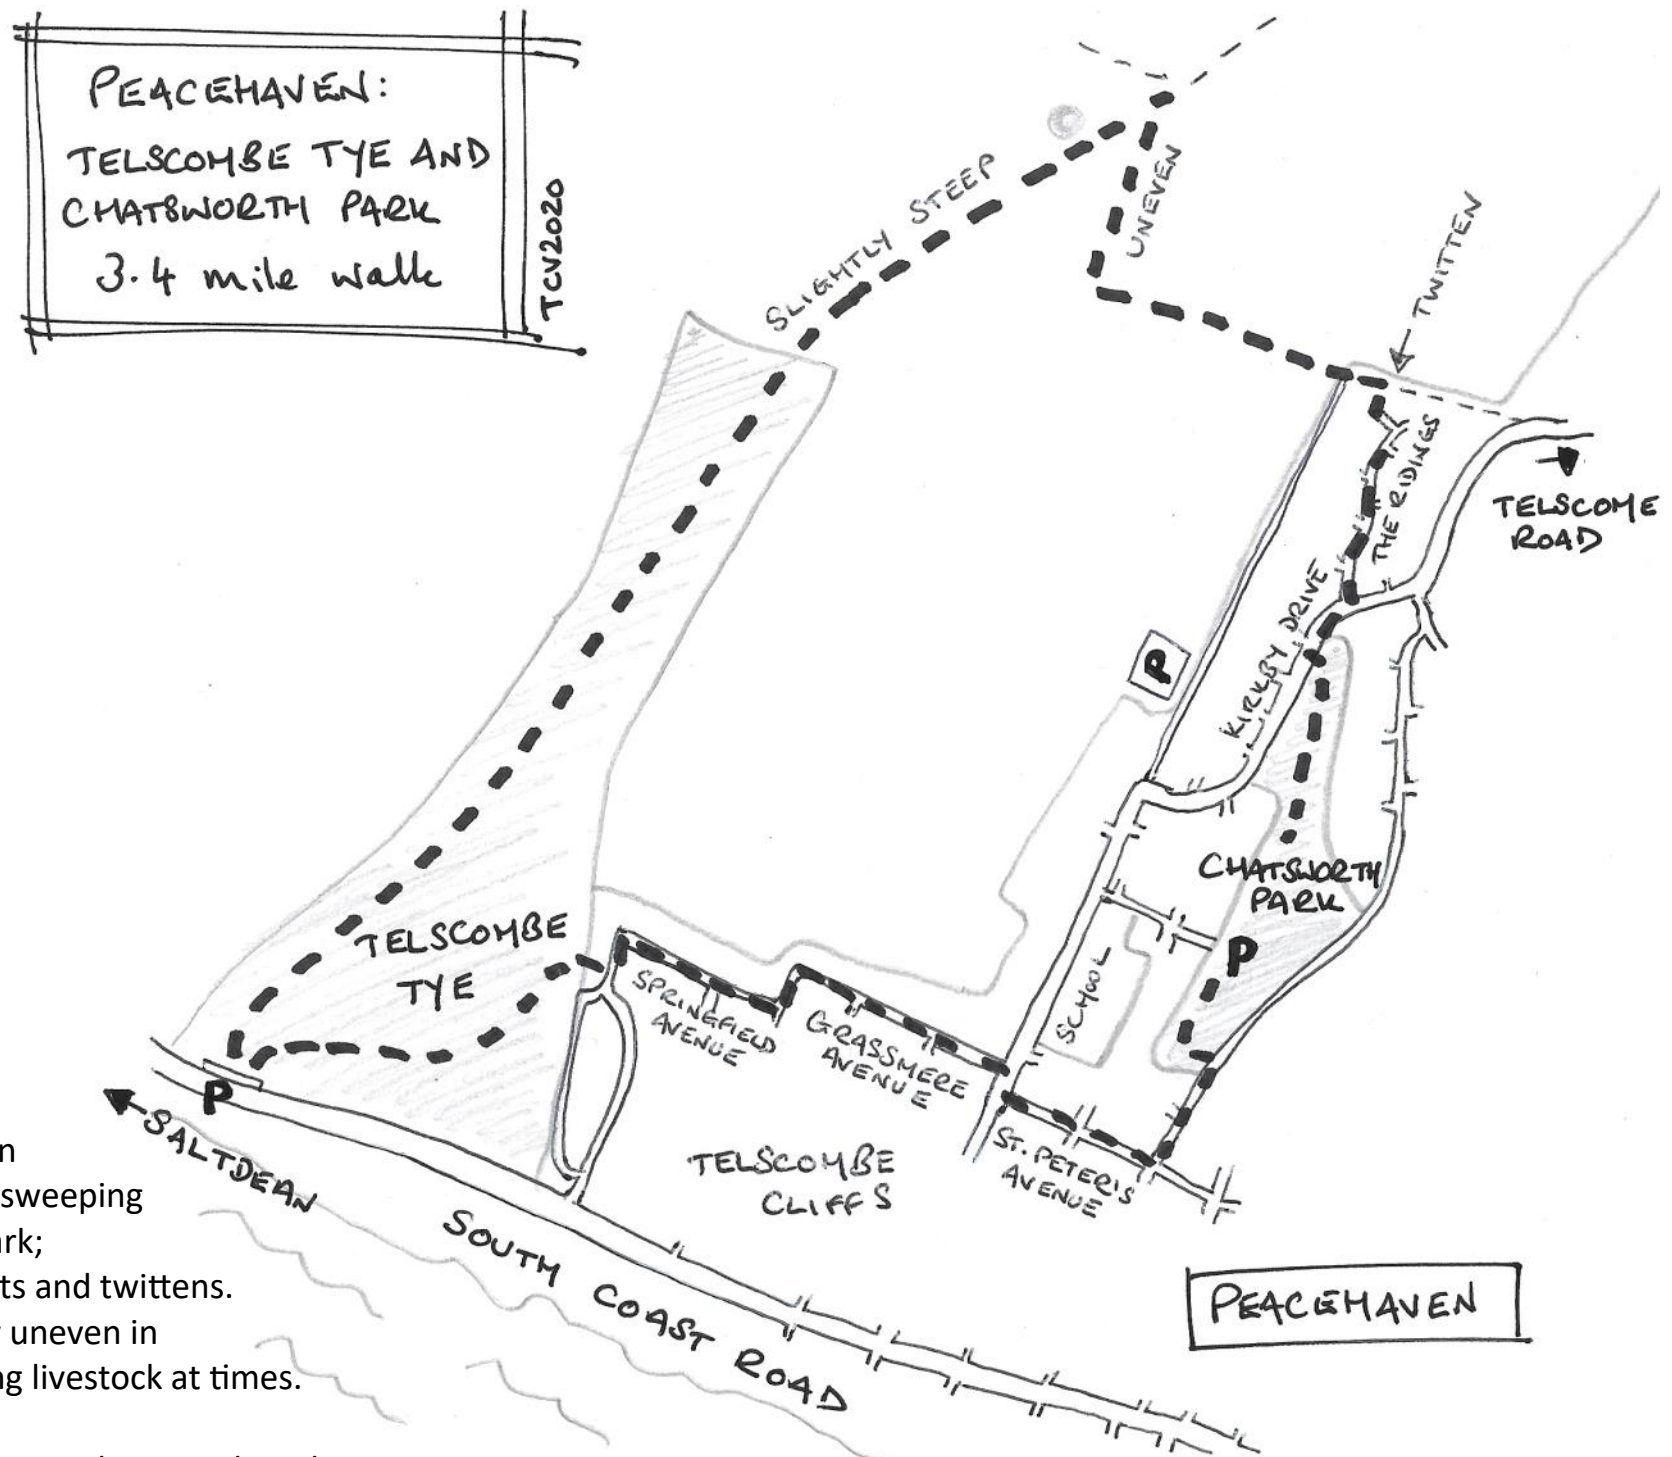 PEACEHAVEN:
TELSCOMBE TYE AND
CHATSWORTH PARK
3.4 mile walk
TCV2020
SLIGHTLY STEEP
UNEVEN
TWITTEN
THE RIDINGS
TELSCOME
ROAD
KIRKBY DRIVE
P
CHATSWORTH
PARK
P
TELSCOMBE
TYE
SPRINGFIELD
AVENUE
GRASSMERE
AVENUE
SCHOOL
P
SALTDEAN
TELSCOMBE
CLIFFS
ST. PETER'S
AVENUE
SOUTH COAST ROAD
PEACEHAVEN
n
sweeping
ark;
ts and twittens.
uneven in
ng livestock at times.